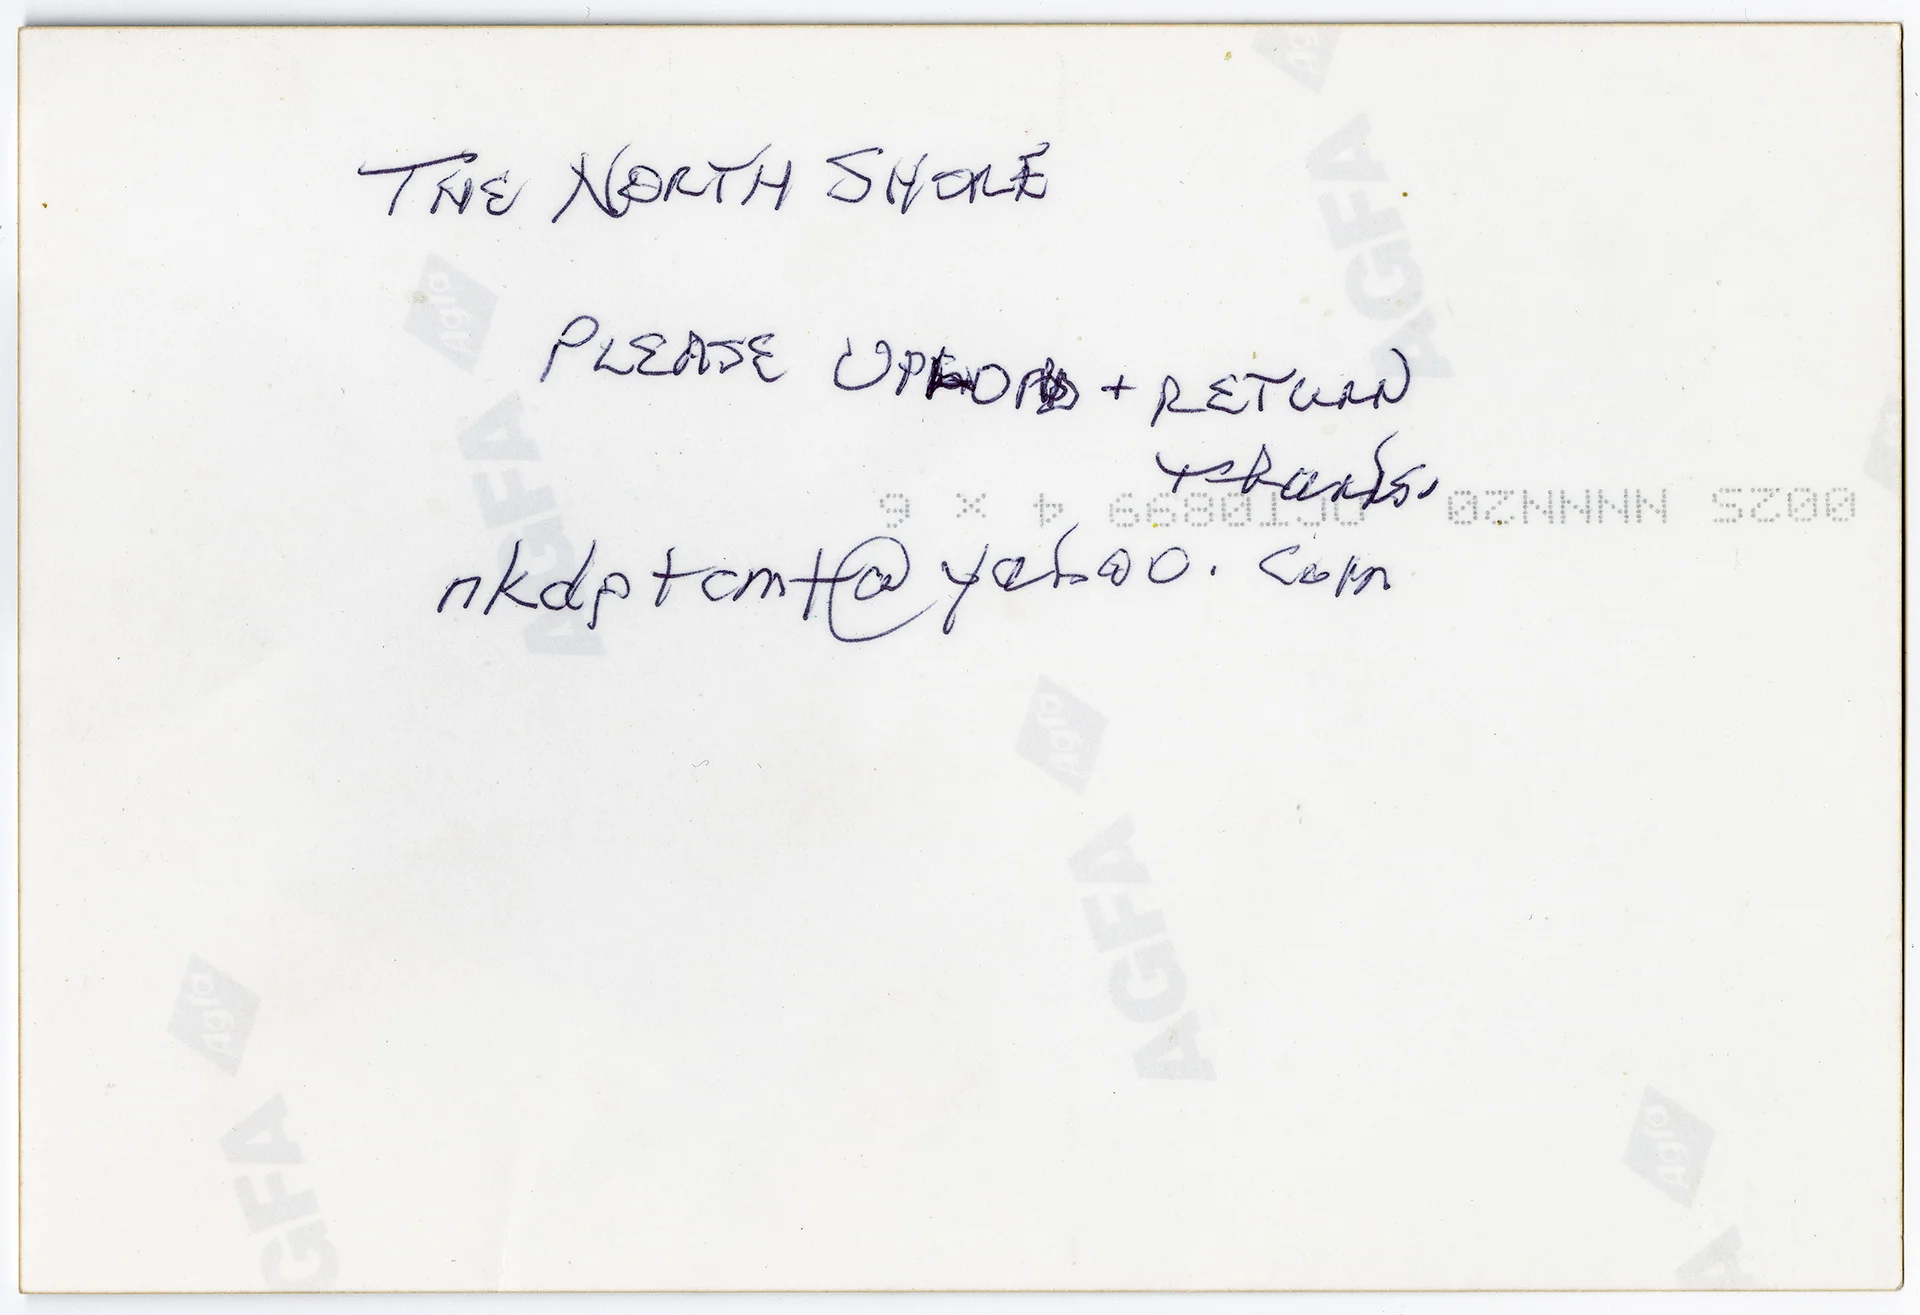 THE NORTH SHORE
PLEASE UPLOAD + RETURN
thanks.
0025 NNNNN20 OCT0899 4 X 6
nkdptcmt@yahoo.com
Agfa
AGFA
Agfa
AGFA
Agfa
AGFA
Agfa
AGFA
Agfa